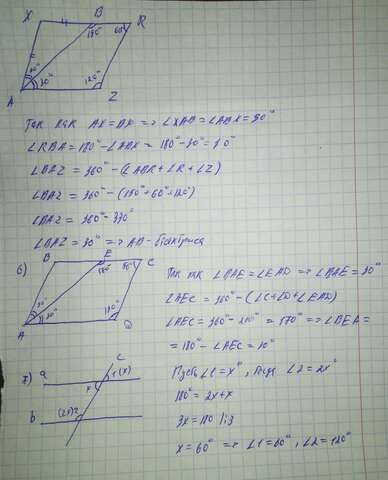 X B R
150° 60°
30° 30° 120°
A Z
Так как AX=BX => ∠XAB=∠ABX=30°
∠RBA = 180° - ∠ABX = 180° - 30° = 150°
∠BAZ = 360° - (∠ABR + ∠R + ∠Z)
∠BAZ = 360° - (150° + 60° + 120°)
∠BAZ = 360° - 330°
∠BAZ = 30° => AB - биктриса
6) B E C
A D
Так так ∠BAE = ∠EAD => ∠BAE = 30°
∠AEC = 360° - (∠C + ∠D + ∠EAD)
∠BEA =
= 180° - ∠AEC =
7) a c 1 (x)
x
b (2x) 2
Пусть ∠1 = x°, тогда ∠2 = 2x°
180° = 2x + x
3x = 180 |:3
x = 60° => ∠1 = 60°, ∠2 = 120°